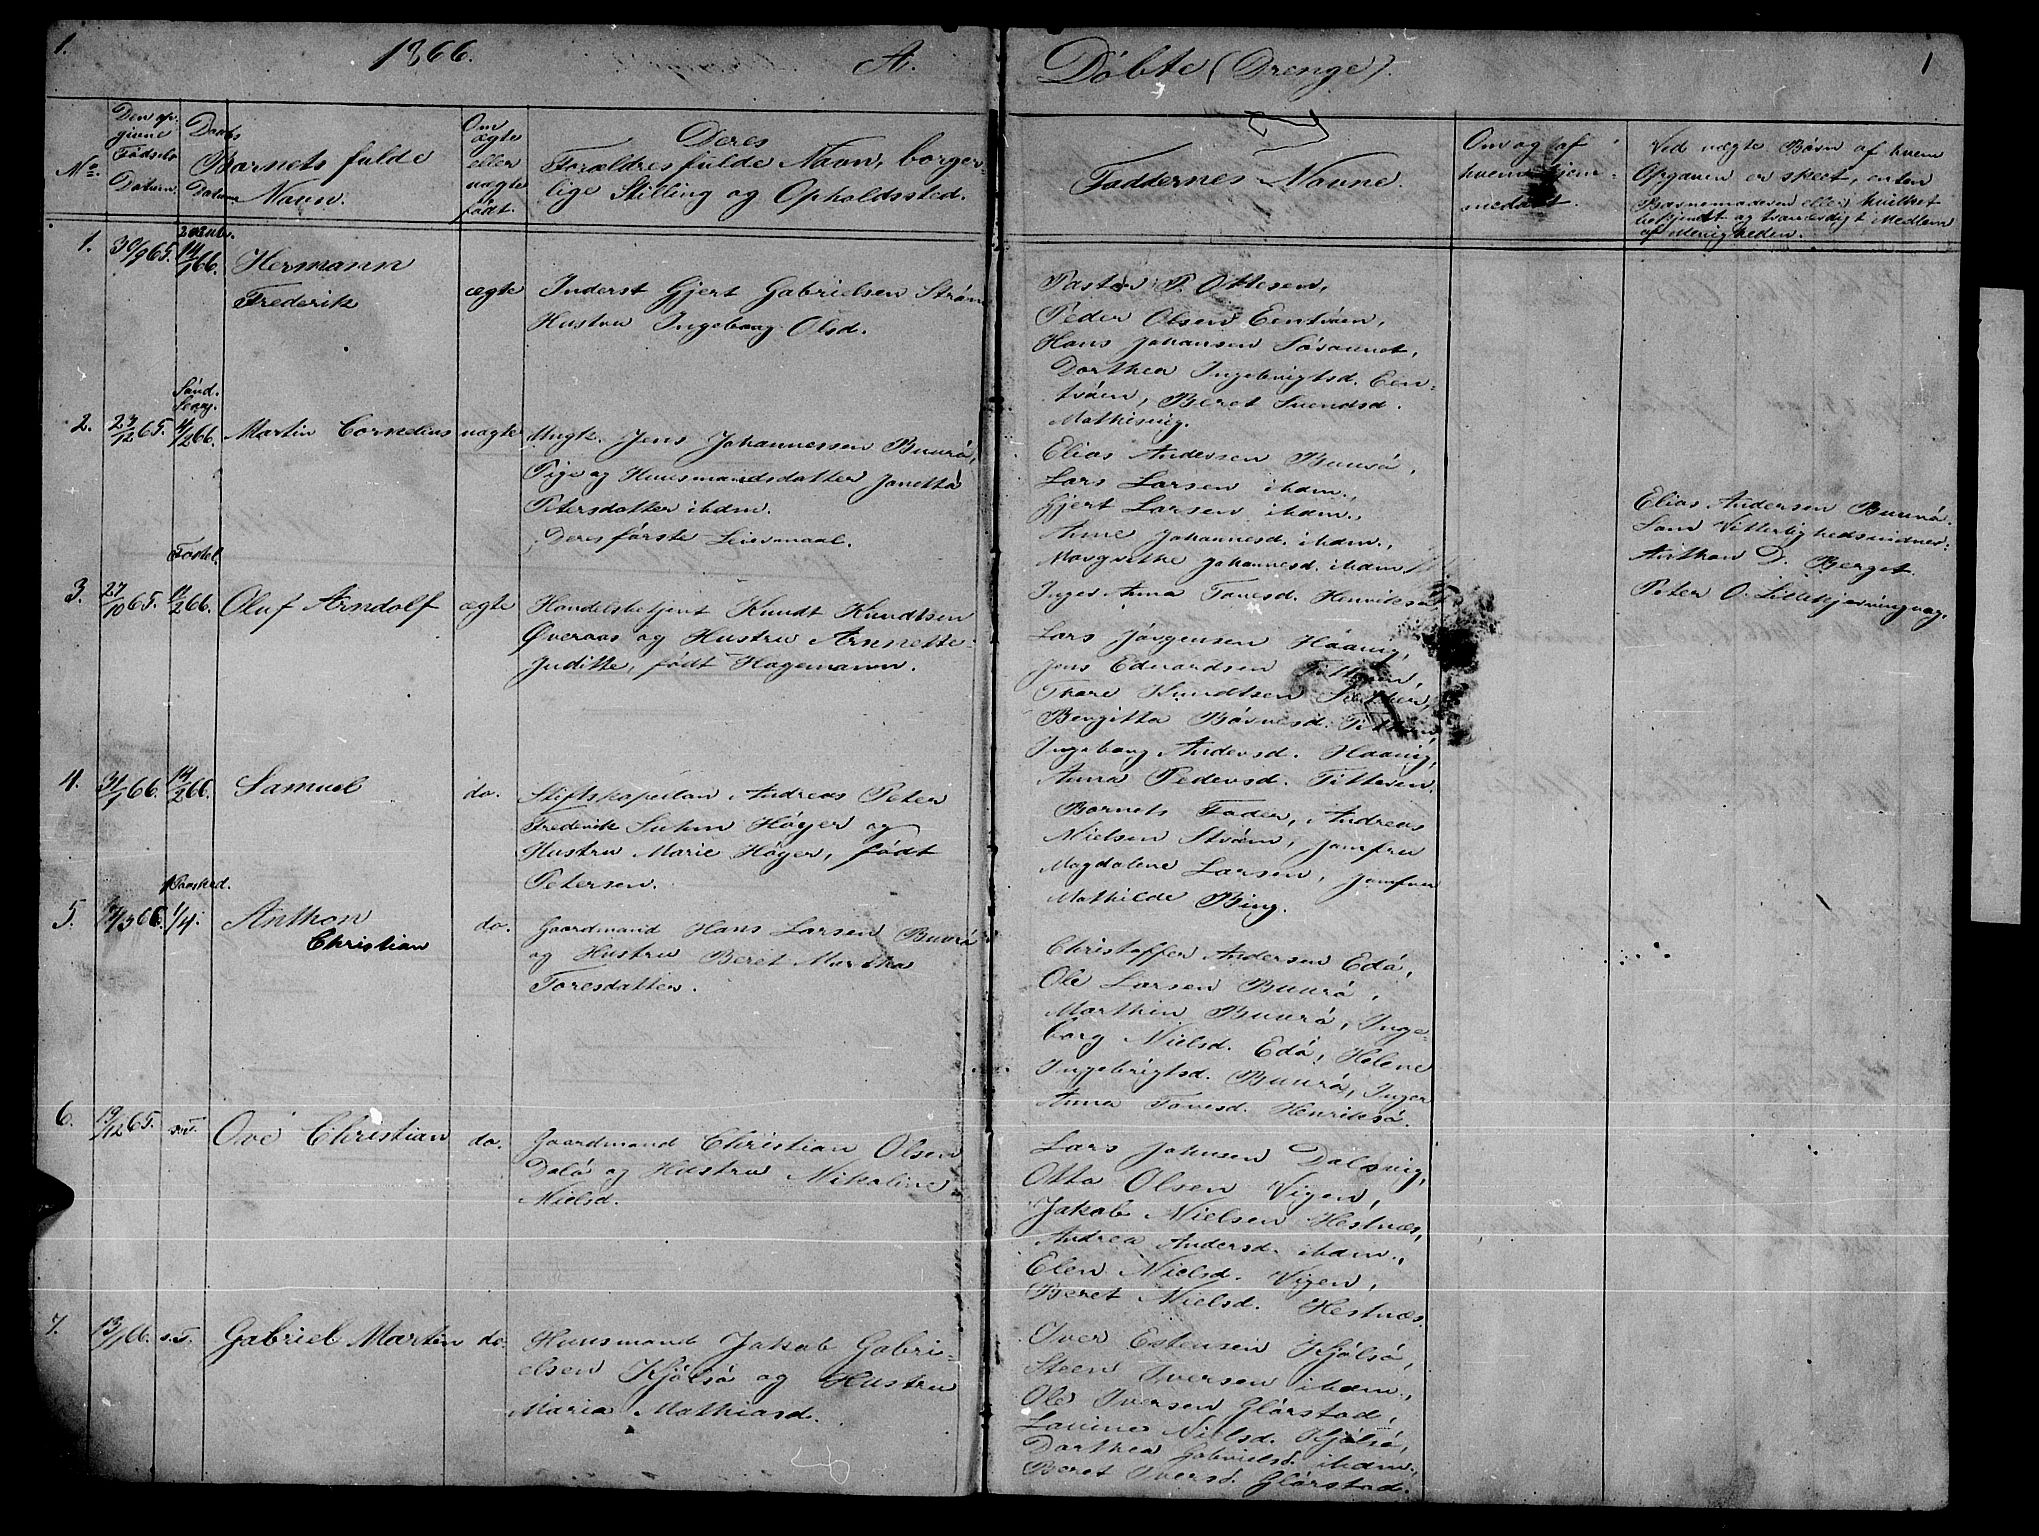 1.
1866.
A.
Döbte (Drenge).
1
No.
Den op-
givne
Födsels
Datum.
Daabs
Datum
Barnets fulde
Navn.
Om
ægte
eller
uægte
födt.
Deres
Forældres fulde Navn, borger-
lige Stilling og Opholdssted.
Faddernes Navne.
Om og af
hvem hjem-
medöbt.
Ved uægte Börn af hvem
Opgaven er skeet, enten
Barnemoderen eller hvilket
bekjendt og troværdigt Medlem
af Menigheden.
1.
30/9 65.
14/1 66.
Hermann
Frederik
ægte
Inderst Gjert Gabrielsen Ström
Hustru Ingeborg Olsd.
Pastor P. Ottesen,
Peder Olsen Eentröen,
Hans Johansen Sövaunet,
Dorthea Ingebrigtsd. Een-
tröen, Beret Svendsd.
Mathisvig.
2.
23/12 65.
Sönd.
Sexag.
4/2 66.
Martin Cornelius
uægte
Ungk. Jens Johannessen Buurö,
Pige og Huusmandsdatter Janetta
Petersdatter ibdm.
Deres förste Leiermaal.
Elias Andersen Buurö,
Lars Larsen ibdm.,
Gjert Larsen ibdm.,
Anne Johannesd. ibdm.,
Margrethe Johannesd. ibdm.,
Inger Anna Toresd. Henriksö
Elias Andersen Buurö.
Som Vitterlighedsvidner:
Anthon D. Berget.
Peter O. Lillekjerringvaag.
3.
27/10 65.
Fastel.
11/2 66.
Oluf Arndolf
ægte
Handelsbetjent Knudt Knudtsen
Överaas og Hustru Arnnette
Judithe, födt Hagemann.
Lars Jörgensen Haavig,
Jens Edvardsen Titteren,
Thore Knudtsen
Bergitta Börresd. Titteren
Ingeborg Andersd. Haavig,
Anna Pedersd. Titteren.
4.
31/1 66.
14/2 66.
Samuel
do.
Stiftskapellan Andreas Peter
Frederik Suhm Höyer og
Hustru Marie Höyer, födt
Peterson.
Barnets Fader, Andreas
Nielsen Ström, Jomfru
Magdalene Larsen, Jomfru
Mathilde Bing.
5.
/3 66.
1 Paaskед.
1/4.
Anthon
Christian
do.
Gaardmand Hans Larsen Buurö
og Hustru Beret Martha
Toresdatter.
Christoffer Andersen Edö,
Ole Larsen Buurö,
Marthin Buurö, Inge-
borg Nielsd. Edö, Helene
Ingebrigtsd. Buurö, Inger
Anna Toresd. Henriksö.
6.
19/12 65.
s.T.
Ove Christian
do.
Gaardmand Christian Olsen
Dolö og Hustru Nikoline
Nielsd.
Lars Johnsen Dolsvig,
Otto Olsen Vigen,
Jakob Nielsen Hestnæs,
Andrea Andersd. ibdm.,
Elen Nielsd. Vigen,
Beret Nielsd. Hestnæs.
7.
13/1 66.
s.T.
Gabriel Martin
do.
Huusmand Jakob Gabri-
elsen Kjölsö og Hustru
Maria Mathiasd.
Iver Estensen Kjölsö,
Steen Iversen ibdm.,
Ole Iversen Glörstad,
Lavina Nielsd. Kjölsö,
Dorthea Gabrielsd. ibdm.,
Beret Iversd. Glörstad.